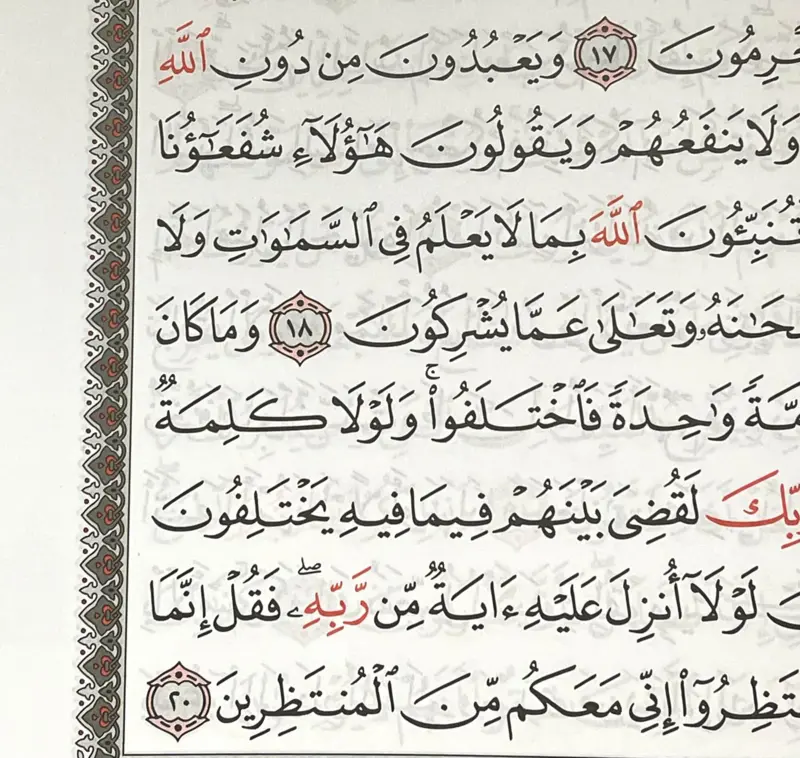 ۡرِمُونَ ١٧ وَيَعۡبُدُونَ مِن دُونِ ٱللَّهِ
وَلَا يَنفَعُهُمۡ وَيَقُولُونَ هَٰٓؤُلَآءِ شُفَعَٰٓؤُنَا
تُنَبِّـُٔونَ ٱللَّهَ بِمَا لَا يَعۡلَمُ فِي ٱلسَّمَٰوَٰتِ وَلَا
حَٰنَهُۥ وَتَعَٰلَىٰ عَمَّا يُشۡرِكُونَ ١٨ وَمَا كَانَ
مَّةٗ وَٰحِدَةٗ فَٱخۡتَلَفُواْۚ وَلَوۡلَا كَلِمَةٞ
بِّكَ لَقُضِيَ بَيۡنَهُمۡ فِيمَا فِيهِ يَخۡتَلِفُونَ
لَوۡلَآ أُنزِلَ عَلَيۡهِ ءَايَةٞ مِّن رَّبِّهِۦۖ فَقُلۡ إِنَّمَا
تَظِرُوٓاْ إِنِّي مَعَكُم مِّنَ ٱلۡمُنتَظِرِينَ ٢٠